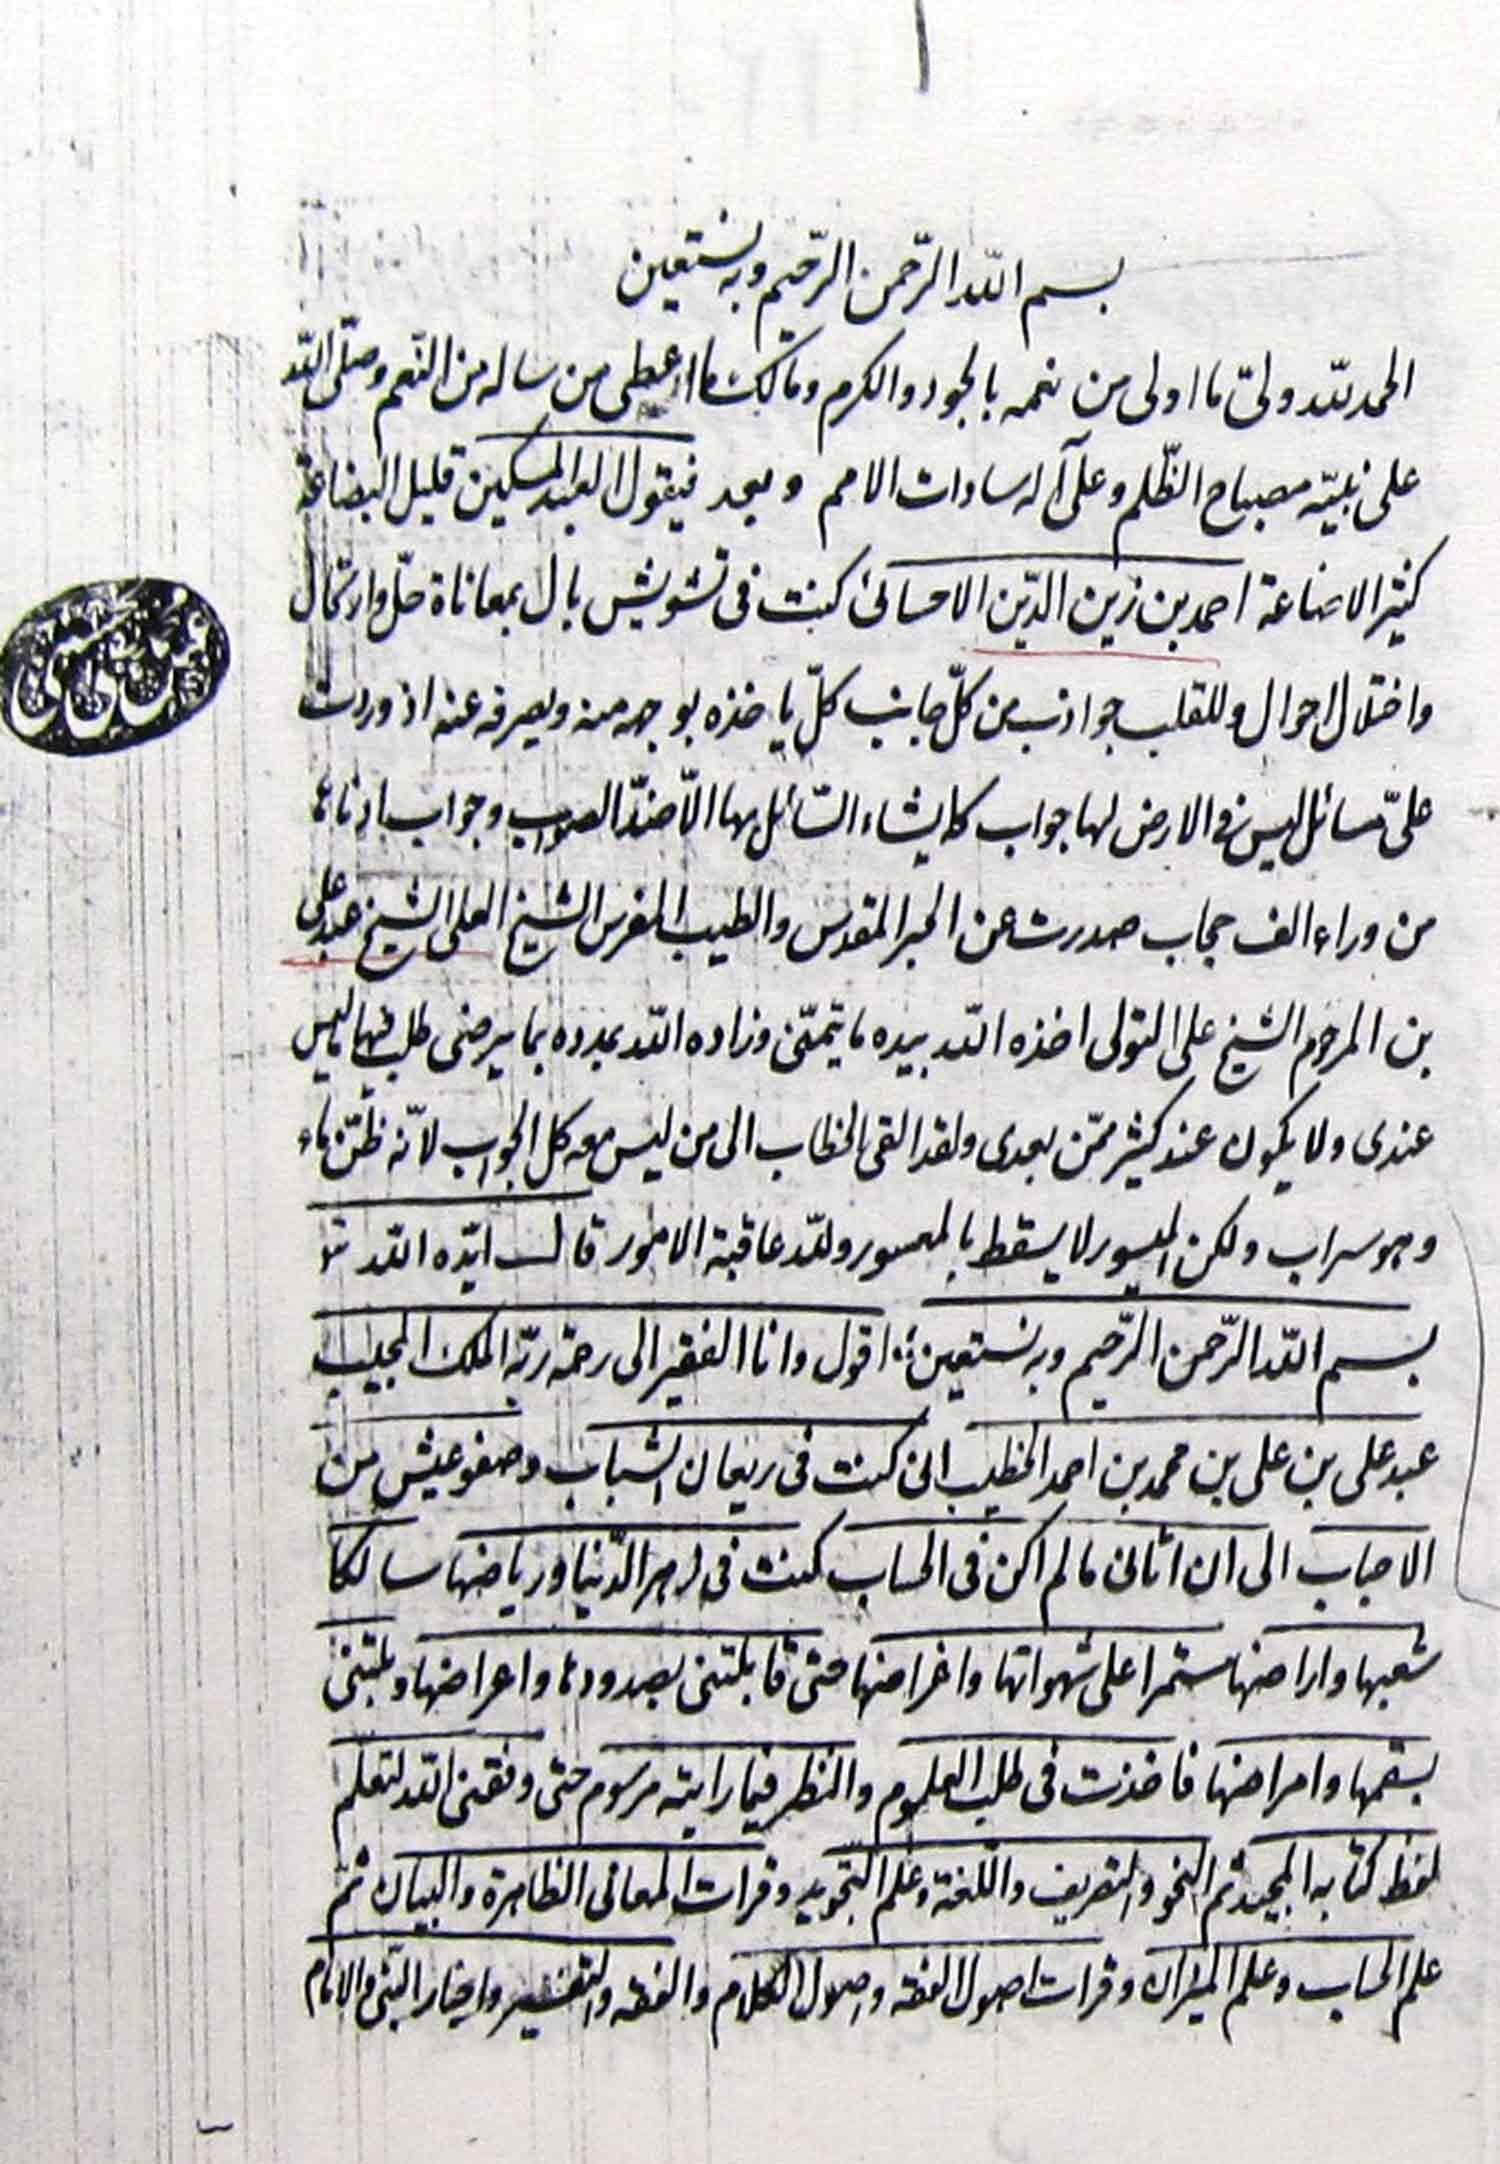 بسم اللّه الرّحمن الرّحيم وبه نستعين
الحمد للّه ولىّ ما اولى من نعمه بالجود والكرم ومالك ما اعطى من ساله من النّعم وصلّى اللّه
على نبيّه مصباح الظّلم وعلى آله سادات الامم وبعد فيقول العبد المسكين قليل البضاعة
كثير الاضاعة احمد بن زين الدّين الاحسائى كنت فى تشويش بال بمعاناة حلّ وارتحال
واختلال احوال وللقلب جواذب من كلّ جانب كلّ ياخذه بوجهه منه ويصرفه عنه اذ وردت
علىّ مسائل ليس فى الارض لها جواب كما يشاء السّائل بها الّا ضدّ الصواب وجواب ادناها
من وراء الف حجاب صدرت عن الحبر المقدس والطيب المغرس الشيخ العلى الشيخ عبد على
بن المرحوم الشيخ على التولى اخذه اللّه بيده ما يتمنّى وزاده اللّه بمدده بما يرضى طلب فيها ما ليس
عندى ولا يكون عند كثير ممّن بعدى ولقد القى الخطاب الى من ليس معه كل الجواب لانّه ظنّ ماء
وهو سراب ولكن الميسور لا يسقط بالمعسور وللّه عاقبة الامور قال ايّده اللّه تع
بسم اللّه الرّحمن الرّحيم وبه نستعين اقول وانا الفقير الى رحمة ربّه الملك المجيب
عبد على بن على بن محمد بن احمد الخطيب انى كنت فى ريعان الشباب وصفو عيش من
الاحباب الى ان اتانى ما لم اكن فى الحساب كنت فى زهر الدّنيا ورياضها سالكا
شعبها واراضها مستمرا على شهواتها واغراضها حتى قابلتنى بصدودها واعراضها وبلتنى
بسقمها وامراضها فاخذت فى طلب العلوم والنظر فيما رايته مرسوم حتى وفقنى اللّه لتعلم
لفظ كتابه المجيد ثم النحو والتصريف واللّغة وعلم التّجويد وقرات المعانى الظاهرة والبيان ثم
علم الحساب وعلم الميزان وقرات اصول الفقه واصول الكلام والفقه والتفسير واخبار النّبى والامام